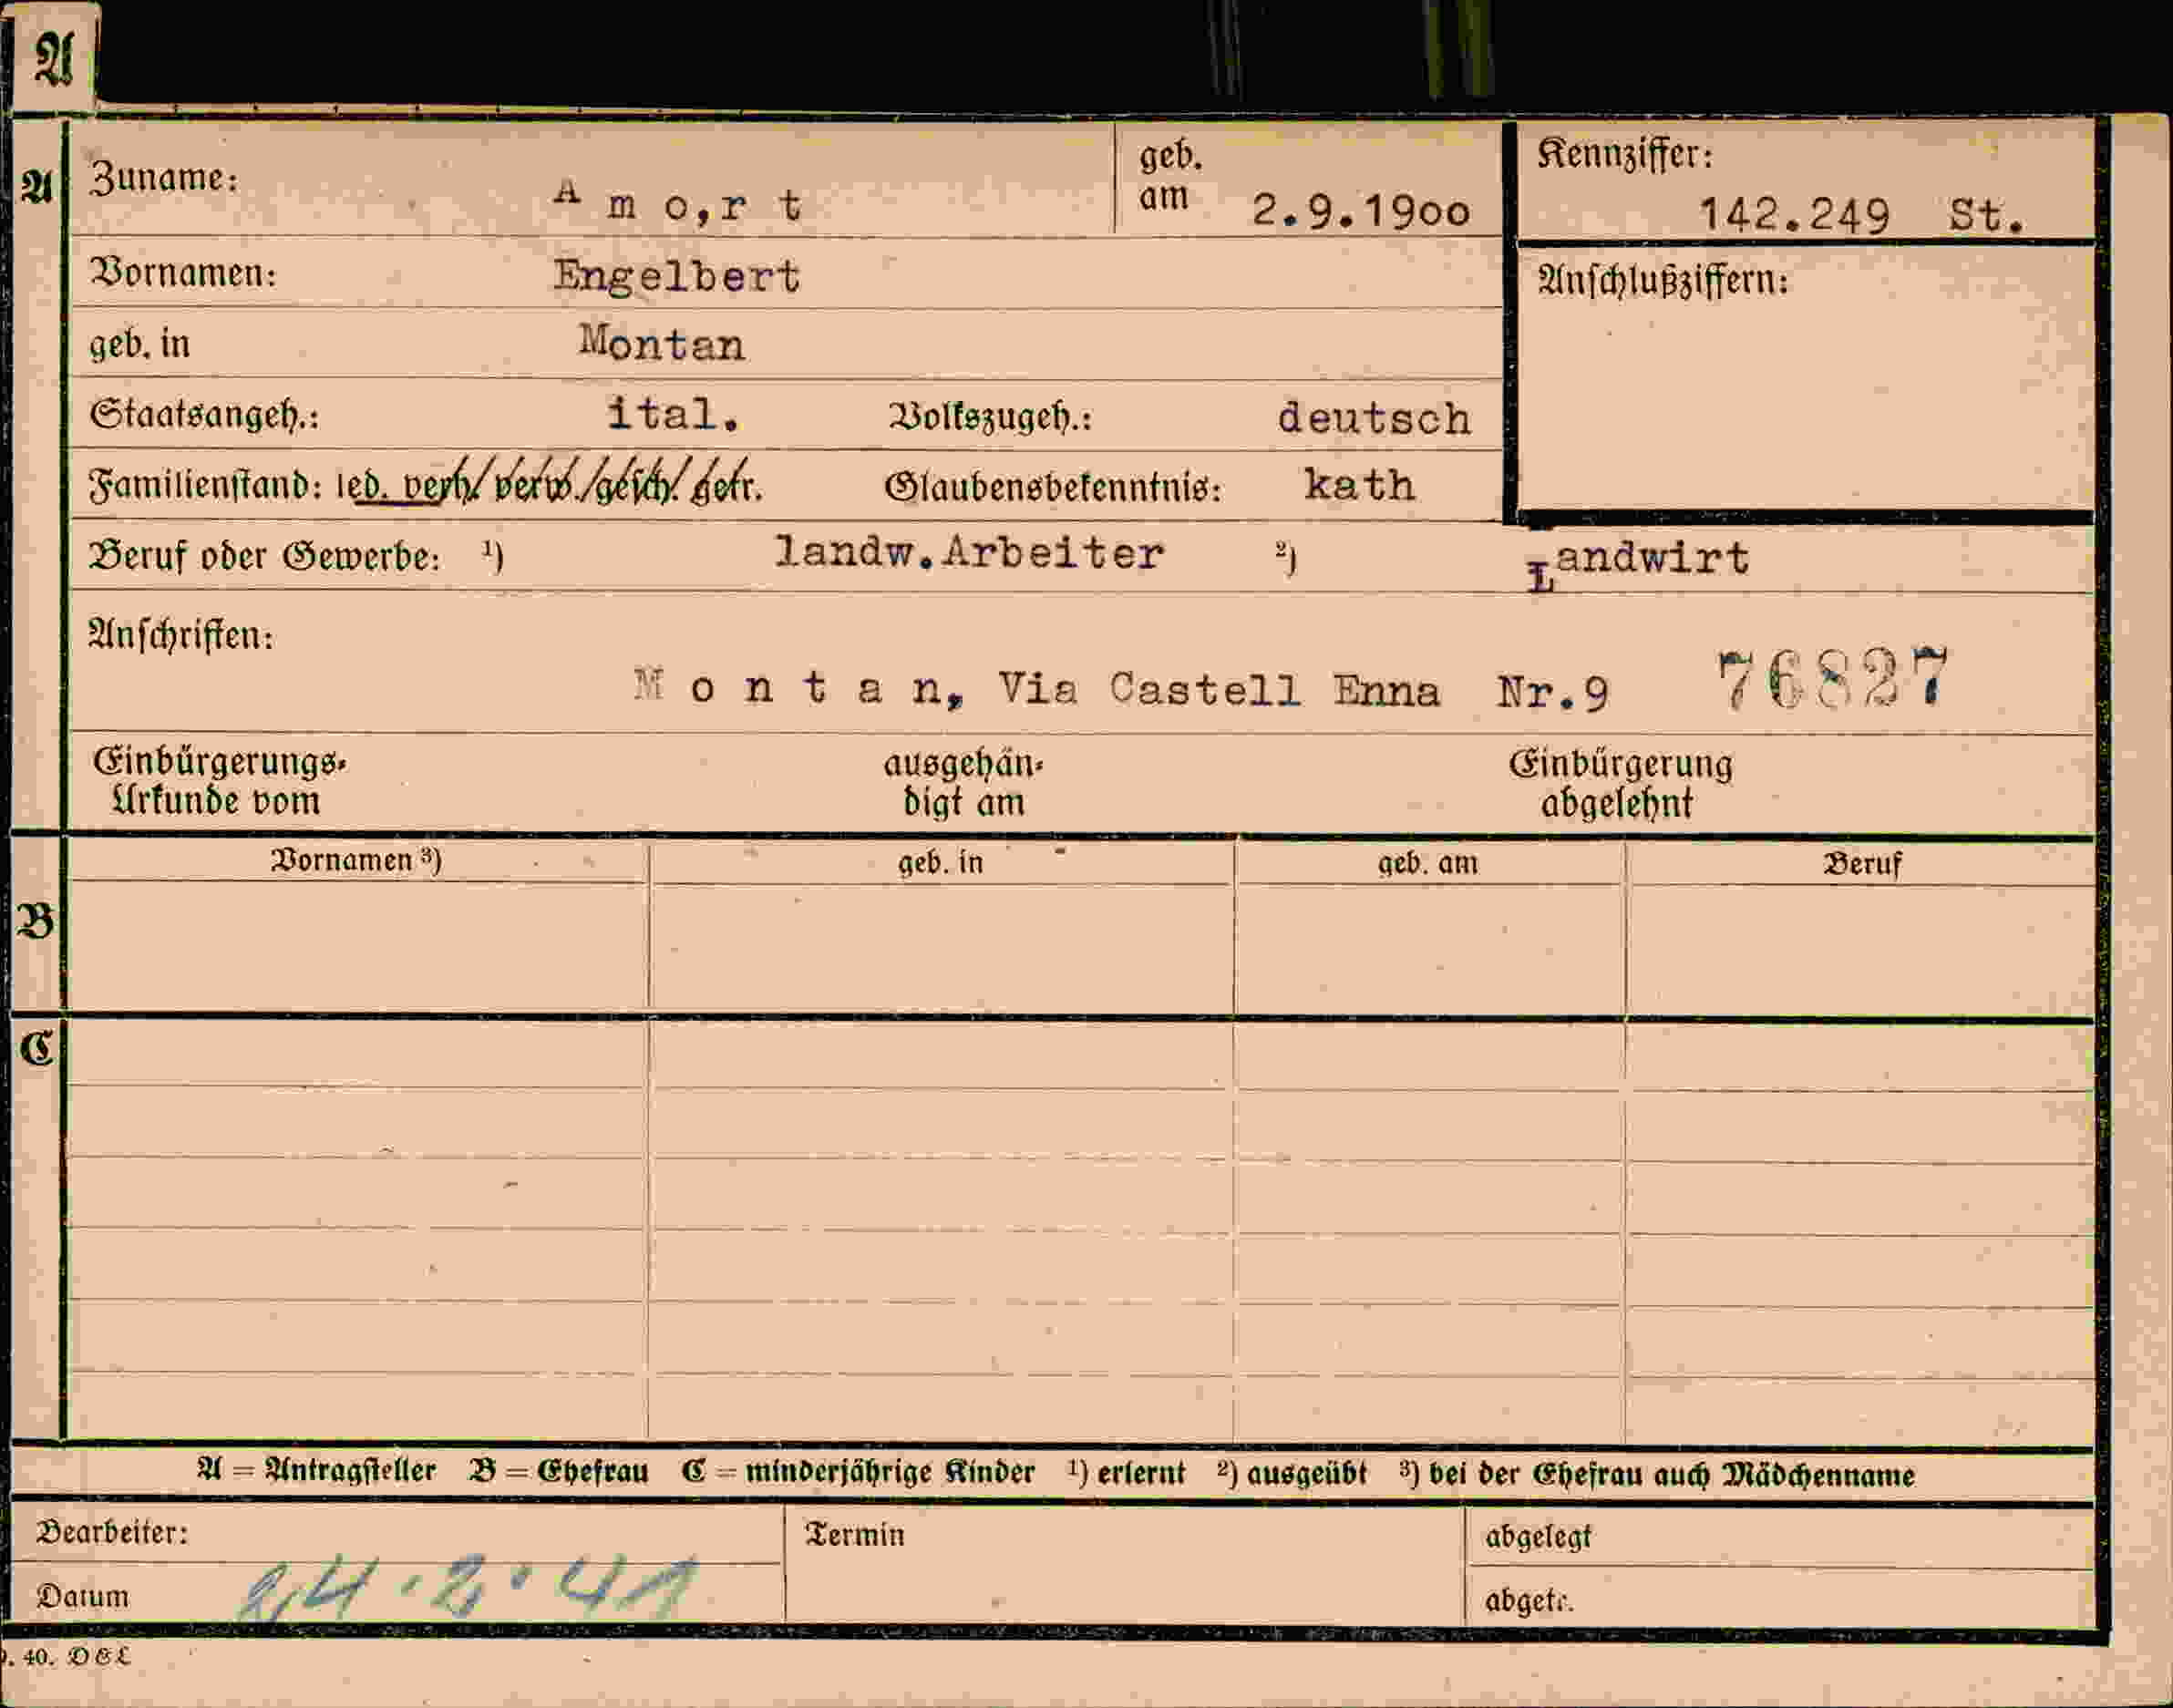 A
A
Zuname: A m o,r t geb. am 2.9.19oo Kennziffer: 142.249 St.
Vornamen: Engelbert Anschlußziffern:
geb. in Montan
Staatsangeh.: ital. Volkszugeh.: deutsch
Familienstand: led. verh. verw. gesch. getr. Glaubensbekenntnis: kath
Beruf oder Gewerbe: ¹) landw.Arbeiter ²) Landwirt
Anschriften:
M o n t a n, Via Castell Enna Nr.9 76827
Einbürgerungs- ausgehän- Einbürgerung
Urkunde vom digt am abgelehnt
B
Vornamen ³) geb. in geb. am Beruf
C
A = Antragsteller B = Ehefrau C = minderjährige Kinder ¹) erlernt ²) ausgeübt ³) bei der Ehefrau auch Mädchenname
Bearbeiter: Termin abgelegt
Datum 24.2.41 abgetr.
. 40. D E L